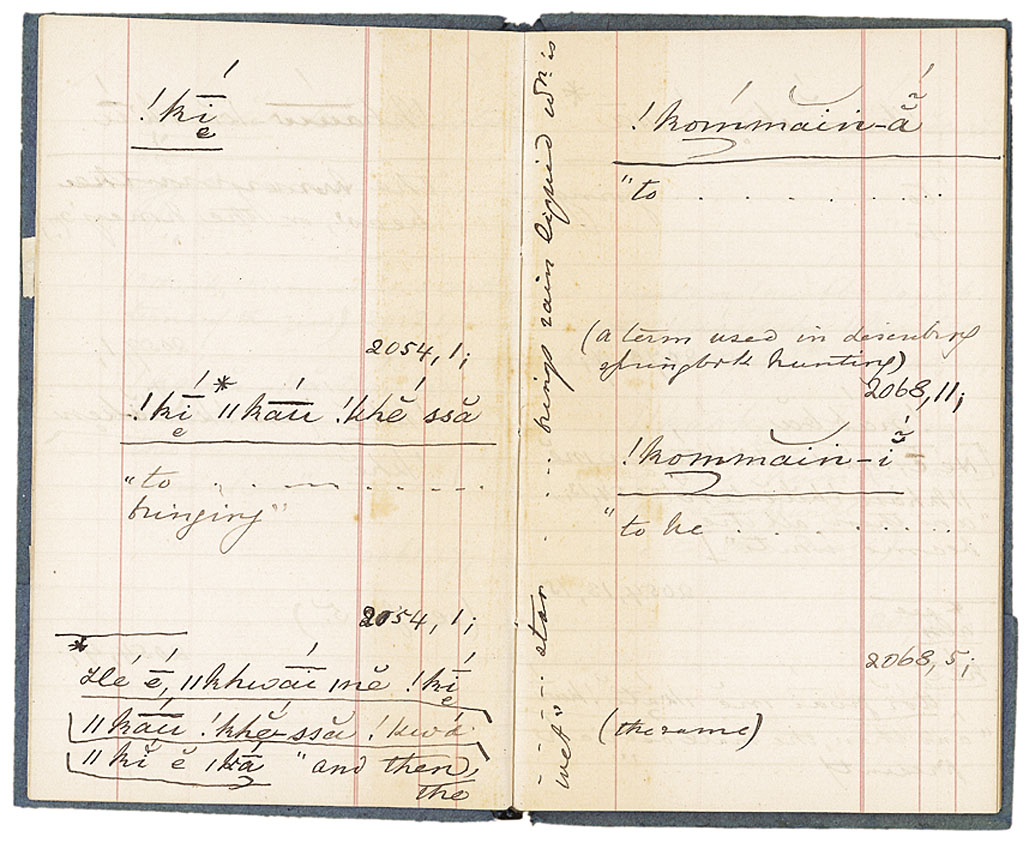 !kī́
2054, 1;
!kī́ * ǁkā́ŭ !khĕ́ ssă
"to . . . . . . .
bringing"
2054, 1;
*
Hé ḗ, ǁkhwā́ĭ ıně !kī́
ǁkāŭ !khě ssă !kwá
ǁkĭ ĕ ıkā́ "and then,
the
star . . . brings rain liquid wh: is
wet"
!kómmăin-ã̆
"to . . . . . . .
(a term used in describing
springbok hunting)
2068, 11;
!kommăin-ĭ
"to he . . . . .
2068, 5;
(the same)